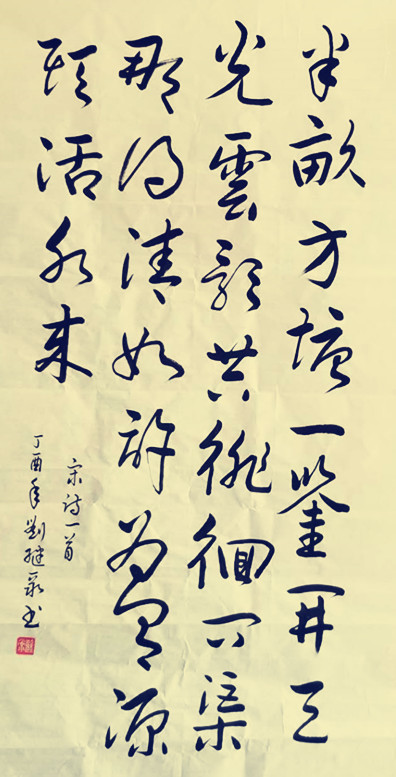 半畝方塘一鑒開天
光雲影共徘徊問渠
那得清如許為有源
頭活水來
宋詩一首
丁酉年劉継书